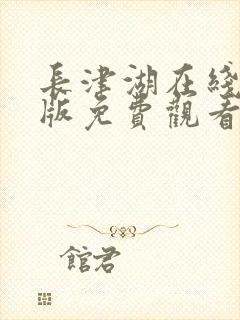 長津湖在綫
版免費觀看
館君